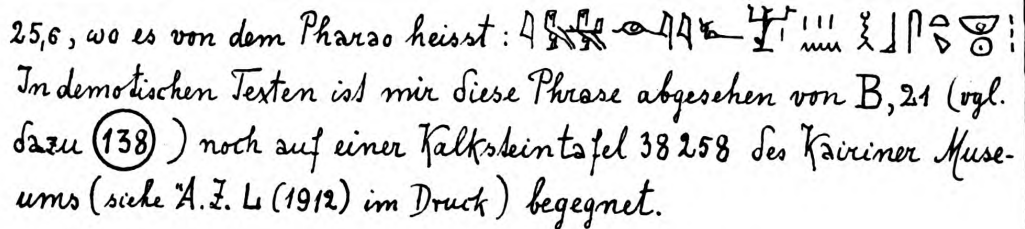 25,6, wo es von dem Pharao heisst:
In demotischen Texten ist mir diese Phrase abgesehen von B, 21 (vgl.
dazu 138) noch auf einer Kalksteintafel 38258 des Kairiner Muse-
ums (siehe Ä.Z. L (1912) im Druck) begegnet.